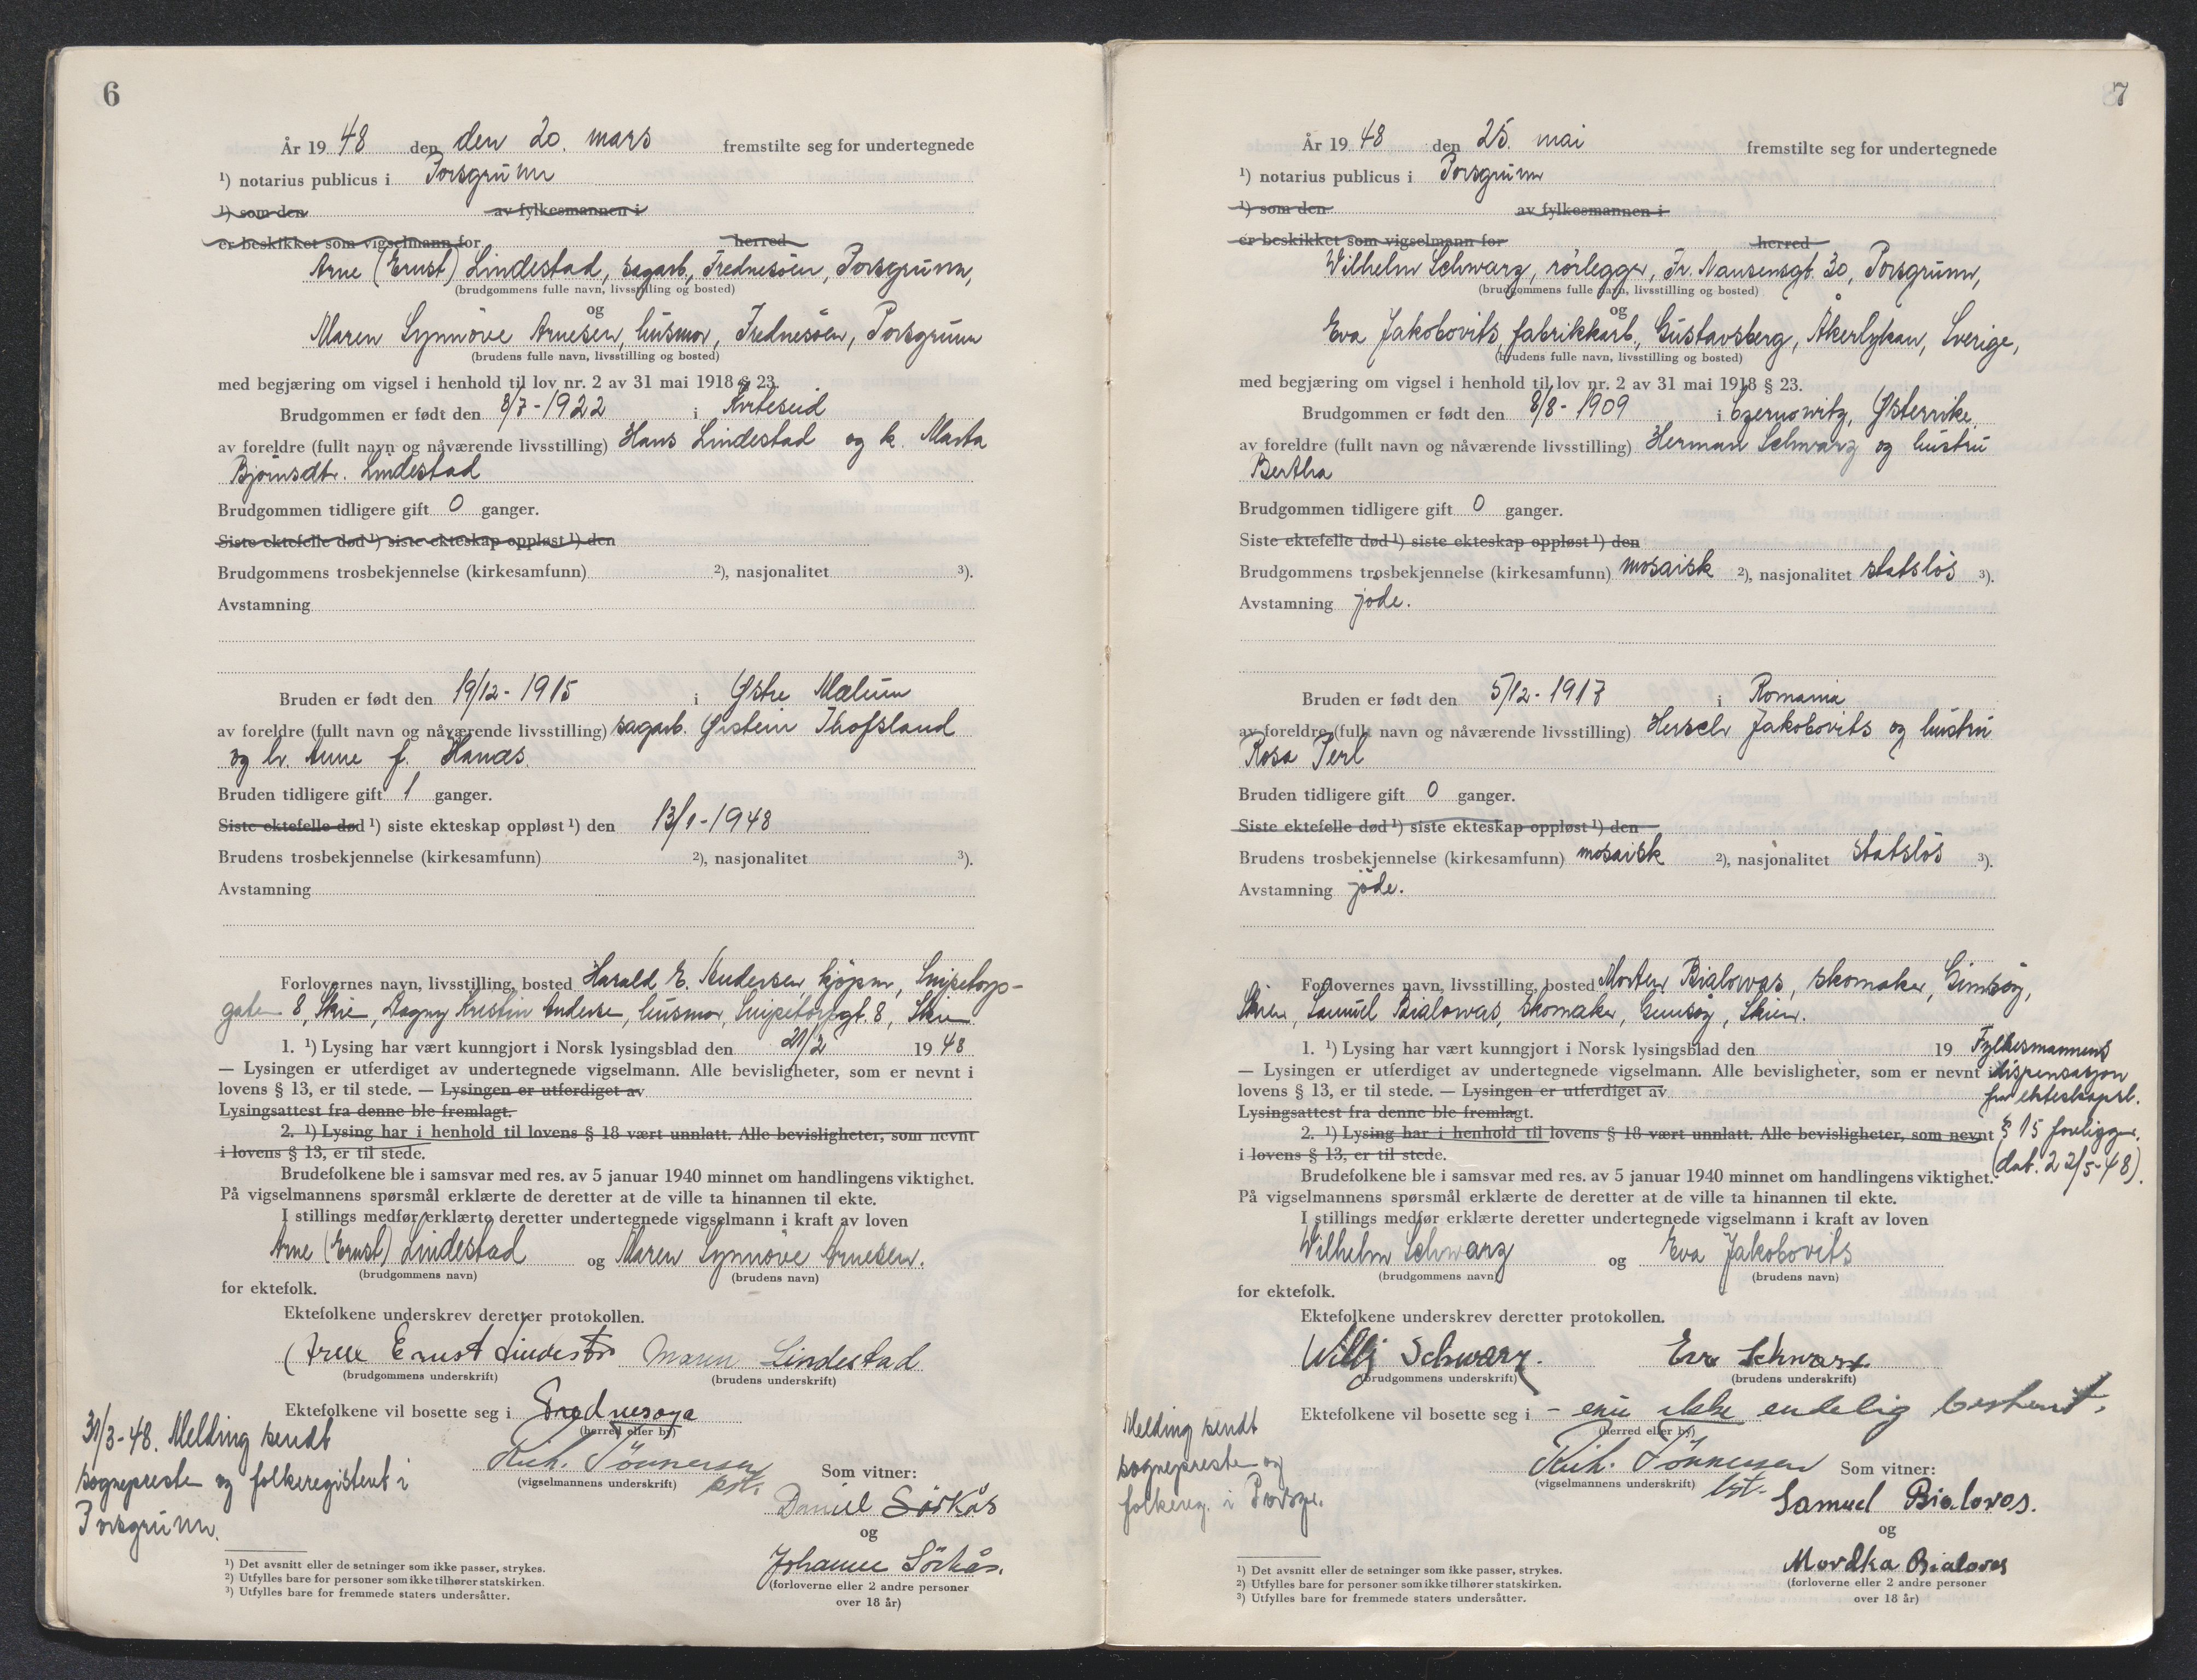 6
År 19 48 den den 20. mars fremstilte seg for undertegnede
¹) notarius publicus i Porsgrunn
¹) som den av fylkesmannen i
er beskikket som vigselmann for herred
Arne (Ernst) Lindestad, sagarb., Frednesöen, Porsgrunn,
(brudgommens fulle navn, livsstilling og bosted)
og
Maren Synnöve Arnesen, husmor, Frednesöen, Porsgrunn
(brudens fulle navn, livsstilling og bosted)
med begjæring om vigsel i henhold til lov nr. 2 av 31 mai 1918 § 23.
Brudgommen er født den 8/7-1922 i Kviteseid
av foreldre (fullt navn og nåværende livsstilling) Hans Lindestad og h. Marta
Bjørnsdtr. Lindestad
Brudgommen tidligere gift 0 ganger.
Siste ektefelle død ¹) siste ekteskap oppløst ¹) den
Brudgommens trosbekjennelse (kirkesamfunn) ²), nasjonalitet ³).
Avstamning
Bruden er født den 19/12-1915 i Østre Mælum
av foreldre (fullt navn og nåværende livsstilling) sagarb. Øistein Thofsland
og h. Anne f. Hanæs.
Bruden tidligere gift 1 ganger.
Siste ektefelle død ¹) siste ekteskap oppløst ¹) den 13/1-1948
Brudens trosbekjennelse (kirkesamfunn) ²), nasjonalitet ³).
Avstamning
Forlovernes navn, livsstilling, bosted Harald E. Andersen, kjöpm., Snipetorp-
gaten 8, Skien, Dagny Kristin Andersen, husmor, Snipetorpgt. 8, Skien
1. ¹) Lysing har vært kunngjort i Norsk lysingsblad den 21/2 19 48
— Lysingen er utferdiget av undertegnede vigselmann. Alle bevisligheter, som er nevnt i
lovens § 13, er til stede. — Lysingen er utferdiget av
Lysingsattest fra denne ble fremlagt.
2. ¹) Lysing har i henhold til lovens § 18 vært unnlatt. Alle bevisligheter, som nevnt
i lovens § 13, er til stede.
Brudefolkene ble i samsvar med res. av 5 januar 1940 minnet om handlingens viktighet.
På vigselmannens spørsmål erklærte de deretter at de ville ta hinannen til ekte.
I stillings medfør erklærte deretter undertegnede vigselmann i kraft av loven
Arne (Ernst) Lindestad og Maren Synnöve Arnesen.
(brudgommens navn) (brudens navn)
for ektefolk.
Ektefolkene underskrev deretter protokollen.
Arne Ernst Lindestad Maren Lindestad
(brudgommens underskrift) (brudens underskrift)
Ektefolkene vil bosette seg i Frednesøya
(herred eller by)
31/3-48. Melding sendt
sognepresten og folkeregisteret i
Porsgrunn.
Rich. Tönnessen
(vigselmannens underskrift)
Som vitner:
Daniel Sörkås
og
Johanne Sörkås.
(forloverne eller 2 andre personer
over 18 år)
¹) Det avsnitt eller de setninger som ikke passer, strykes.
²) Utfylles bare for personer som ikke tilhører statskirken.
³) Utfylles bare for fremmede staters undersåtter.
7
År 19 48 den 25. mai fremstilte seg for undertegnede
¹) notarius publicus i Porsgrunn
¹) som den av fylkesmannen i
er beskikket som vigselmann for herred
Wilhelm Schwarz, rörlegger, Fr. Nansensgt. 30, Porsgrunn,
(brudgommens fulle navn, livsstilling og bosted)
og
Eva Jakobovits, fabrikkarb., Gustavsberg, Åkerlyckan, Sverige,
(brudens fulle navn, livsstilling og bosted)
med begjæring om vigsel i henhold til lov nr. 2 av 31 mai 1918 § 23.
Brudgommen er født den 8/8-1909 i Czernowitz, Østerrike
av foreldre (fullt navn og nåværende livsstilling) Herman Schwarz og hustru
Bertha
Brudgommen tidligere gift 0 ganger.
Siste ektefelle død ¹) siste ekteskap oppløst ¹) den
Brudgommens trosbekjennelse (kirkesamfunn) mosaisk ²), nasjonalitet statslös ³).
Avstamning jöde.
Bruden er født den 5/12-1917 i Romania
av foreldre (fullt navn og nåværende livsstilling) Hersch Jakobovits og hustru
Rosa Perl
Bruden tidligere gift 0 ganger.
Siste ektefelle død ¹) siste ekteskap oppløst ¹) den
Brudens trosbekjennelse (kirkesamfunn) mosaisk ²), nasjonalitet statslös ³).
Avstamning jöde.
Forlovernes navn, livsstilling, bosted Morten Bialowas, skomaker, Gimsöy,
Skien, Samuel Bialowas, skomaker, Gimsöy, Skien.
1. ¹) Lysing har vært kunngjort i Norsk lysingsblad den 19
— Lysingen er utferdiget av undertegnede vigselmann. Alle bevisligheter, som er nevnt i
lovens § 13, er til stede. — Lysingen er utferdiget av
Lysingsattest fra denne ble fremlagt.
2. ¹) Lysing har i henhold til lovens § 18 vært unnlatt. Alle bevisligheter, som nevnt
i lovens § 13, er til stede.
Fylkesmannens
dispensasjon
fra ekteskapsl.
§ 15 foreligger.
(dat. 22/5-48).
Brudefolkene ble i samsvar med res. av 5 januar 1940 minnet om handlingens viktighet.
På vigselmannens spørsmål erklærte de deretter at de ville ta hinannen til ekte.
I stillings medfør erklærte deretter undertegnede vigselmann i kraft av loven
Wilhelm Schwarz og Eva Jakobovits
(brudgommens navn) (brudens navn)
for ektefolk.
Ektefolkene underskrev deretter protokollen.
Willj Schwarz. Eva Schwarz.
(brudgommens underskrift) (brudens underskrift)
Ektefolkene vil bosette seg i - enn ikke endelig bestemt.
(herred eller by)
Melding sendt
sognepresten og
folkereg. i Porsgr.
Rich. Tönnessen
(vigselmannens underskrift)
Som vitner:
Samuel Bialowas.
og
Mordka Bialowas
(forloverne eller 2 andre personer
over 18 år)
¹) Det avsnitt eller de setninger som ikke passer, strykes.
²) Utfylles bare for personer som ikke tilhører statskirken.
³) Utfylles bare for fremmede staters undersåtter.